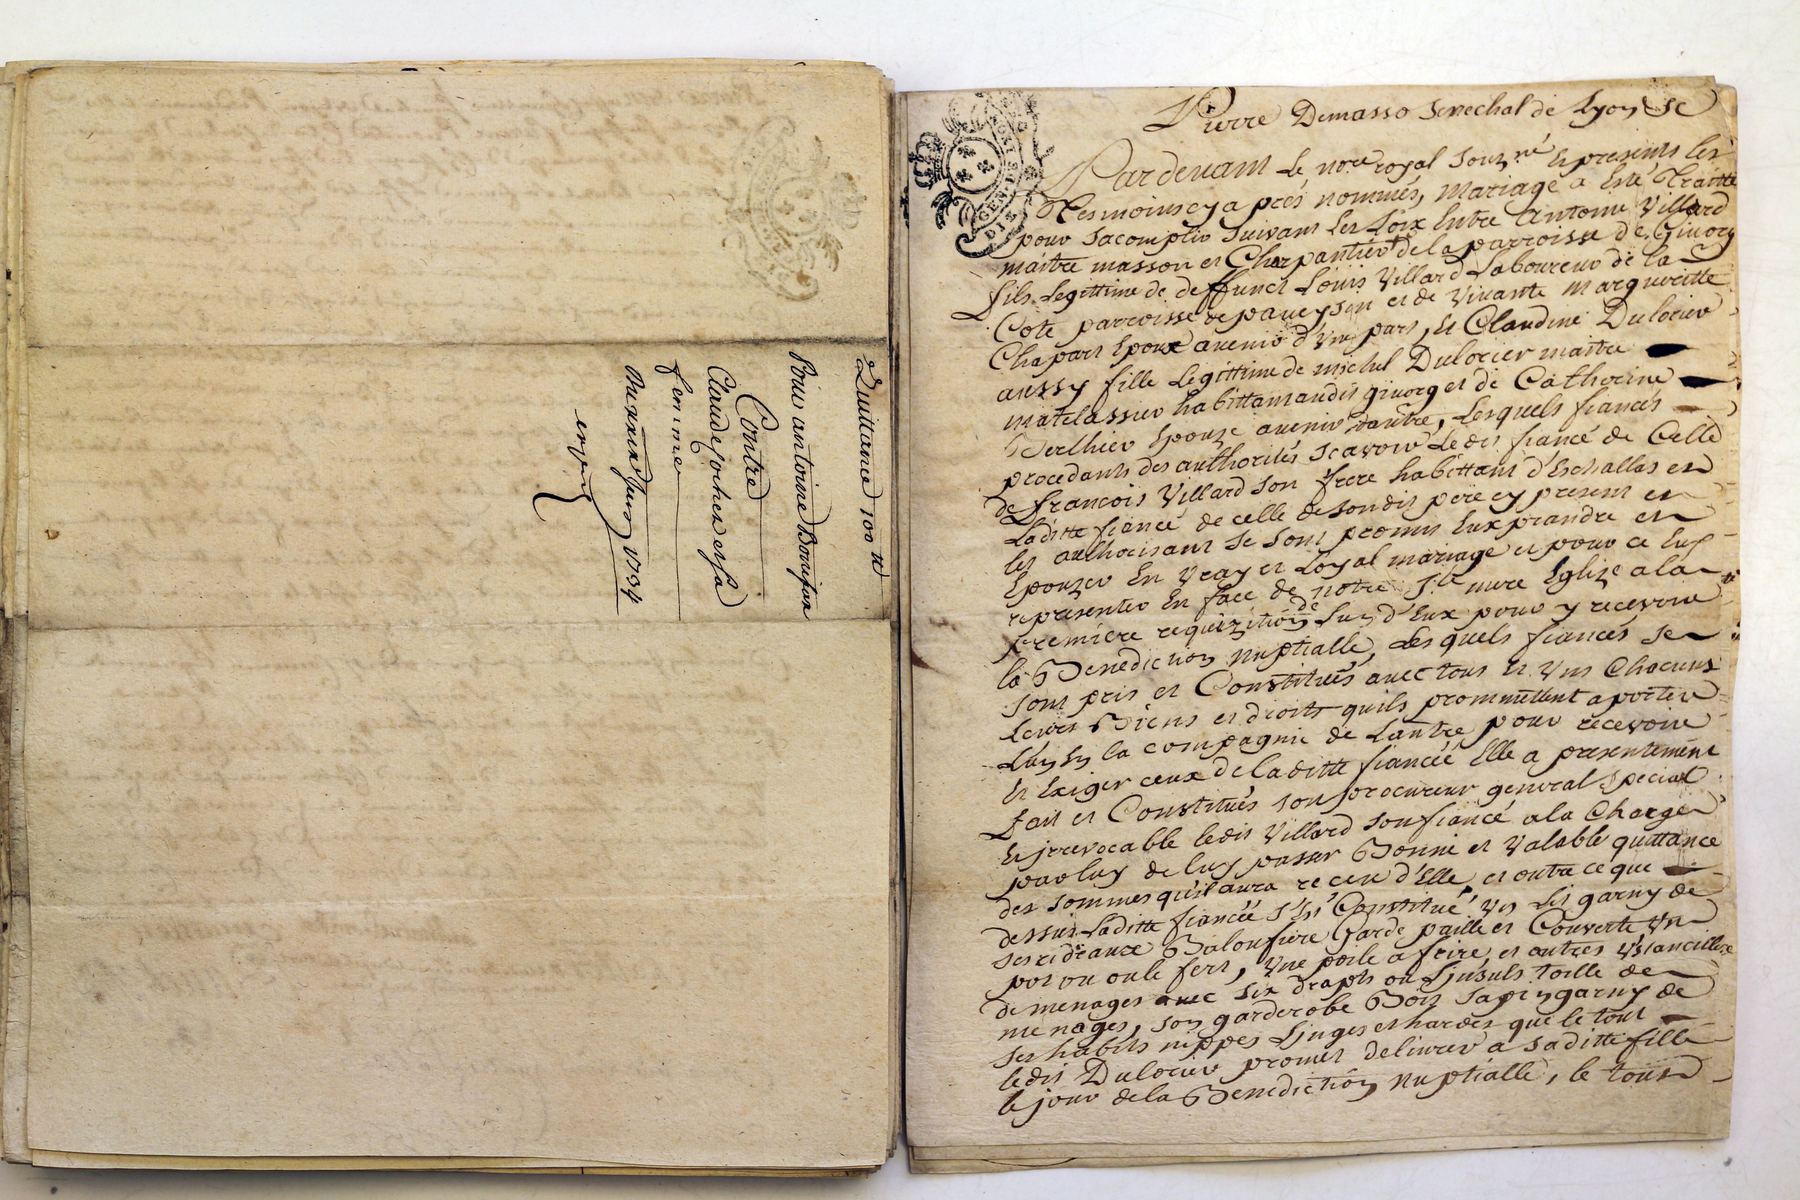 Quittance 100 tt
Pour antoinne Bonifax
Contre
Claude jocher et sa
femme
Du xxixe Juin 1734
GEN DE
DIX
Pierre Demasso Senechal de Lyon Sc
Pardevant Le nore royal Souzné & presents les
Tesmoins cy a prés nommés, Mariage a Esté Traitté
pour Sacomplir Suivant Les Loix Entre Antoine Villard
maitre masson et Charpantier de la parroisse de Givors
fils Legittime de deffunct Loüis Villard Laboureur de la
Cote parroisse de paveyssin et de Vivante Margueritte
Chapart Epoux avenir d'Une part, Et Claudine Dulorier
aussy fille Legittime de michel Dulorier maitre
matelassier habittant audit givors et de Catherine
Berthier Epouze avenir d'autre, Lesquels fiancés
procedants des authorités Scavoir Ledit fiancé de Celle
de francois Villard son frere habittant d'Eschallas et
Laditte fiancé de celle de sondit pere cy present et
les authorisant Se sont promis Eux prandre et
Epouzer En Vray et Loyal mariage et pour ce Eux
representer En face de notre Ste mere Eglize a la
premiere requizition de Lun d'Eux pour y recevoir
la Benediction Nuptialle, Les quels fiancés se
sont pris et Constitués avec tous Et Uns Chacuns
Leurs Biens et droits quils promettent aporter
Lun En la compagnie de Lautre pour recevoir
Et Exiger ceux de laditte fiancée Elle a presentement
fait et Constitués son procureur general Special
Et irrevocable ledit Villard son fiancé a la Charge
par luy de luy passer Bonne et Valable quittance
des sommes qu'il aura receu d'Elle, et outre ce que
dessus Laditte fiancée S'Est Constitué Un Lit garny de
ses rideaux Baloufiere Garde paille et Couverte Un
pot ou oule fert, Une poile a frire, et autres Ustancilles
de menages avec Six draps ou Linsuls toille de
menages, son garderobe Bois Sapin garny de
ses habits nippes Linges et hardes que le tout
ledit Dulorier promet delivrer a sa ditte fille
le jour de la Benediction Nuptialle, le tout